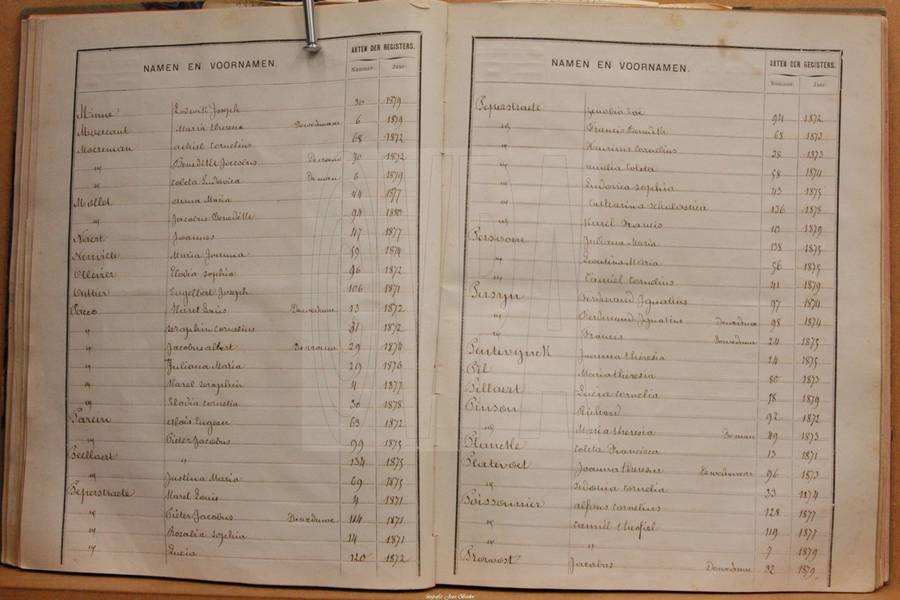 NAMEN EN VOORNAMEN.
AKTEN DER REGISTERS.
Nummer. Jaar.
Minne Lodewijk Joseph 30 1879
Moreeaut Maria Theresia 6 1879
Moereman Achiel Cornelius 68 1872
" Benedikt Jacobus 30 1872
" Coleta Ludovica 6 1879
Mollet Anna Maria 44 1877
" Jacobus Benedikt 94 1880
Neirt Joannes 47 1877
Neuville Maria Joanna 59 1874
Ollevier Elodia Sophia 96 1872
Engelbert Joseph 106 1871
Karel Louis 13 1872
" Seraphin Cornelius 31 1872
" Jacobus Albert 29 1874
" Juliana Maria 29 1876
" Karel Seraphin 4 1877
" Elodia Cornelia 30 1878
Parein Aloïs Eugeen 63 1872
" Pieter Jacobus 99 1875
Peellaert " 134 1875
" Justina Maria 69 1875
Peperstraete Karel Louis 4 1871
" Pieter Jacobus 114 1871
" Rosalia Sophia 14 1871
" Lucia 120 1872
NAMEN EN VOORNAMEN.
AKTEN DER REGISTERS.
Nummer. Jaar.
Peperstraete Zenobia 94 1872
" Francis Benedikt 63 1873
" Henricus Cornelius 28 1873
" Amelia Coleta 58 1874
" Ludovica Sophia 43 1875
" Catharina Scholastica 136 1878
" Karel Francis 10 1879
Persoone Juliana Maria 138 1875
" Leontina Maria 56 1875
" Camiel Cornelius 41 1879
Persyn Ferdinand Ignatius 97 1874
" Ferdinand Ignatius 98 1874
" Francis 24 1875
Penteynck Joanna Theresia 24 1875
Pil Maria Theresia 80 1873
Pillaert Lucia Cornelia 78 1879
Pinson Richard 92 1872
" Maria Theresia 49 1873
Plancke Coleta Francisca 13 1871
Platevoet Joanna Theresia 96 1873
" Ludovica Cornelia 33 1874
Poissonnier Alfons Cornelius 128 1877
" Camiel Theofiel 119 1877
" " 7 1879
Provoost Jacobus 32 1879